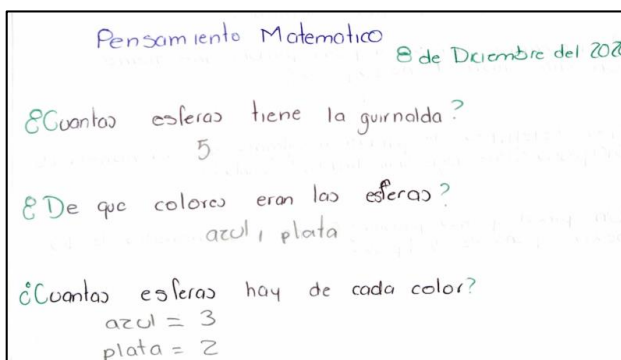 Pensamiento Matematico
8 de Diciembre del 202
¿Cuantas esferas tiene la guirnalda?
5
¿De que colores eran las esferas?
azul, plata
¿Cuantas esferas hay de cada color?
azul = 3
plata = 2